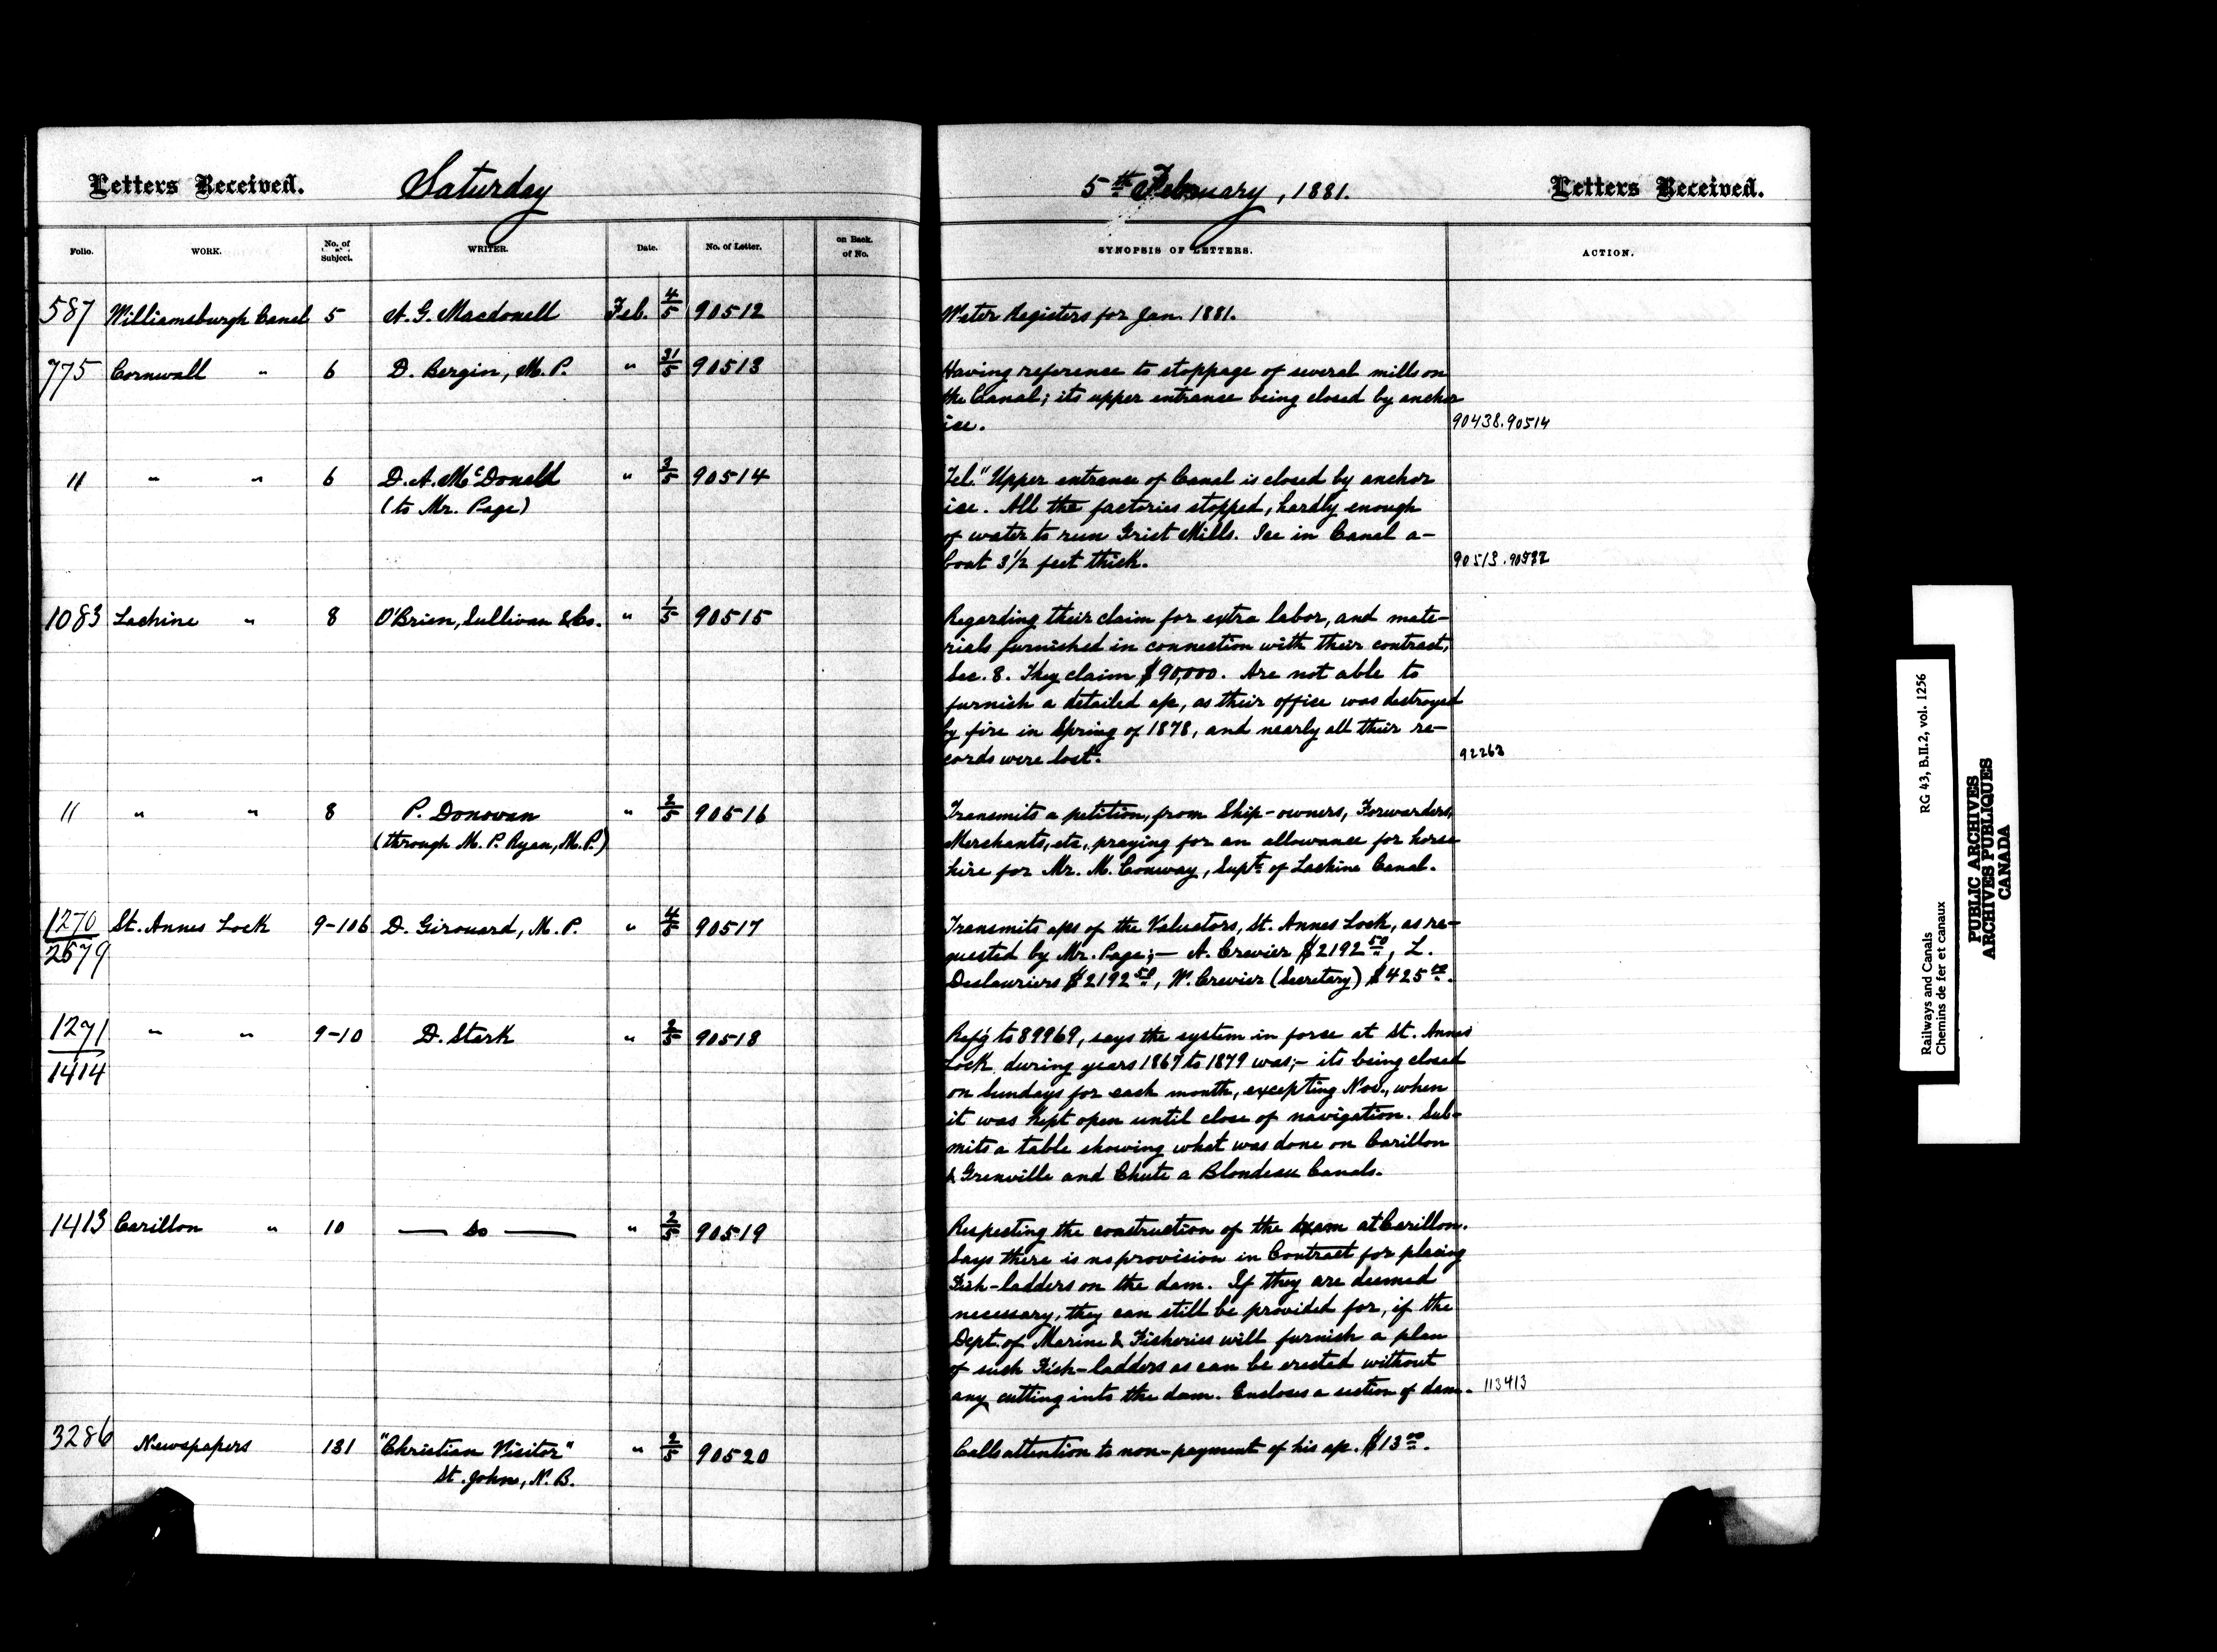 Letters Received.
Saturday
5th February, 1881.
Letters Received.
Folio. WORK. No. of Subject. WRITER. Date. No. of Letter. on Back of No. SYNOPSIS OF LETTERS. ACTION.
587 Williamsburgh Canal 5 A. G. Macdonell Feb. 4/5 90512 Water Registers for Jan. 1881.
775 Cornwall " 6 D. Bergin, M. P. " 31/5 90513 Having reference to stoppage of several mills on
the Canal; its upper entrance being closed by anchor
ice. 90438.90514
11 " " 6 D. A. McDonald " 3/5 90514 Tel. "Upper entrance of Canal is closed by anchor
(to Mr. Page) ice. All the factories stopped, hardly enough
of water to run Grist Mills. Ice in Canal a-
bout 3 1/2 feet thick. 90513.
1083 Lachine " 8 O'Brien, Sullivan & Co. " 1/5 90515 Regarding their claim for extra labor, and mate-
rials furnished in connection with their contract,
Sec. 8. They claim $90,000. Are not able to
furnish a detailed a/c, as their office was destroyed
by fire in Spring of 1878, and nearly all their re-
cords were lost. 92263
11 " " 8 P. Donovan " 2/5 90516 Transmits a petition, from Ship-owners, Forwarders,
(through M. P. Ryan, M. P.) Merchants, etc, praying for an allowance for horse
hire for Mr. M. Conway, Supt. of Lachine Canal.
1270/2679 St. Annes Lock 9-106 D. Girouard, M. P. " 4/5 90517 Transmits a/cs of the Valuators, St. Annes Lock, as re-
quested by Mr. Page;— A. Crevier $2192 50, L.
Deslauriers $2192 50, W. Crevier (Secretary) $425 00.
1271/1414 " " 9-10 D. Stark " 2/5 90518 Ref'g to 89969, says the system in force at St. Annes
Lock during years 1867 to 1879 was;- its being closed
on Sundays for each month, excepting Nov., when
it was kept open until close of navigation. Sub-
mits a table showing what was done on Carillon
& Grenville and Chute a Blondeau Canals.
1413 Carillon " 10 — Do — " 2/5 90519 Respecting the construction of the dam at Carillon.
Says there is no provision in Contract for placing
Fish-ladders on the dam. If they are deemed
necessary, they can still be provided for, if the
Dept. of Marine & Fisheries will furnish a plan
of such Fish-ladders as can be erected without
any cutting into the dam. Encloses a section of dam. 113413
3286 Newspapers 131 "Christian Visitor" " 2/5 90520 Calls attention to non-payment of his a/c. $13 00.
St. John, N. B.
Railways and Canals RG 43, B.II.2, vol. 1256
Chemins de fer et canaux
PUBLIC ARCHIVES
ARCHIVES PUBLIQUES
CANADA